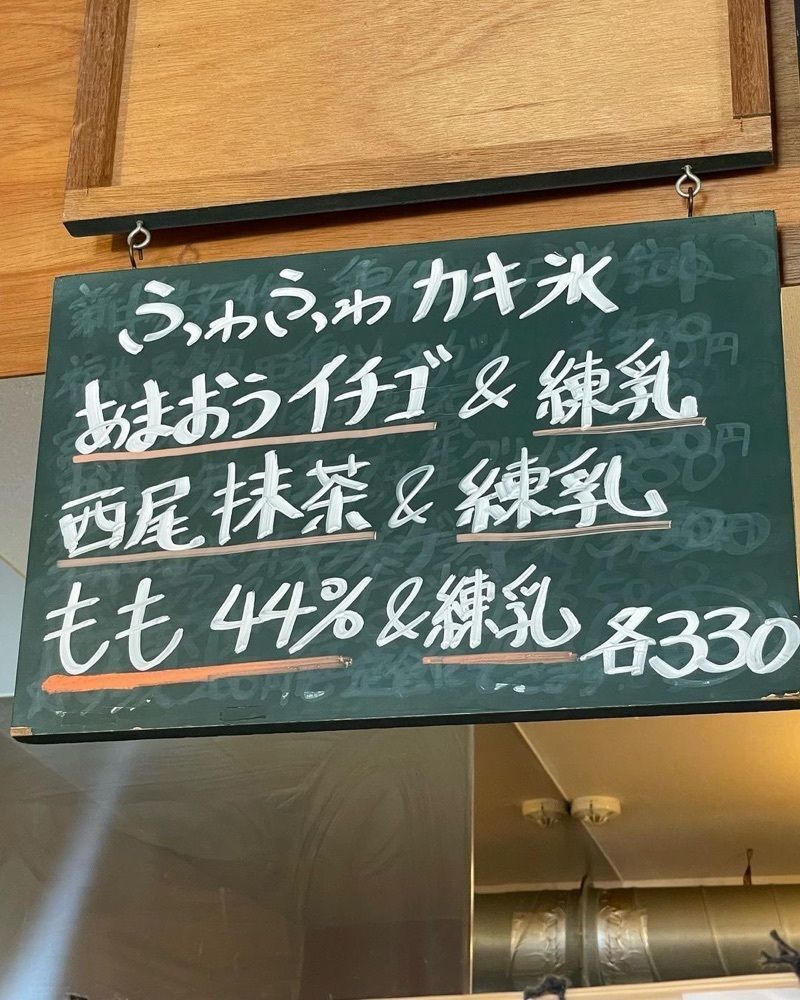 ふわふわ カキ氷
あまおう イチゴ & 練乳
西尾 抹茶 & 練乳
もも 44% & 練乳 各330